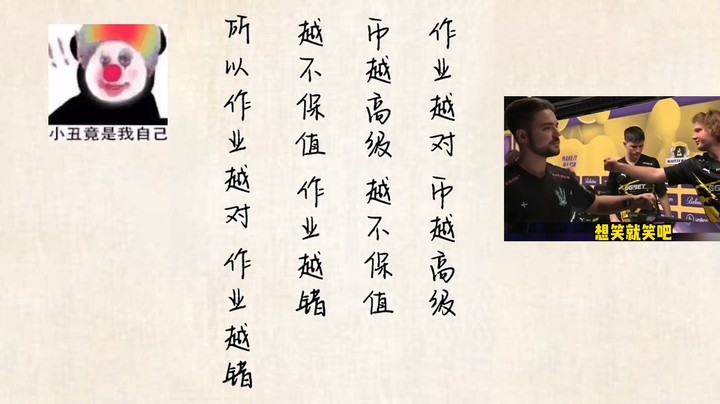 作业越对 币越高级
币越高级 越不保值
越不保值 作业越错
所以作业越对 作业越错
小丑竟是我自己
想笑就笑吧
GGBET